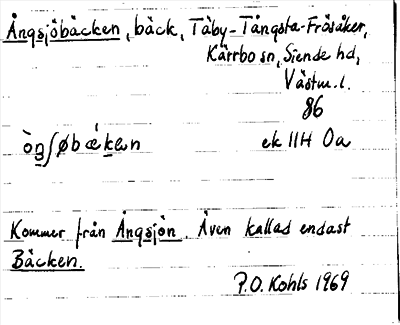 Ångsjöbäcken, bäck, Täby-Tångsta-Frösåker,
Kärrbo sn, Siende hd,
Västm. l.
86
ek 11H 0a
Kommer från Ångsjön. Även kallad endast
Bäcken.
P.O. Kohls 1969